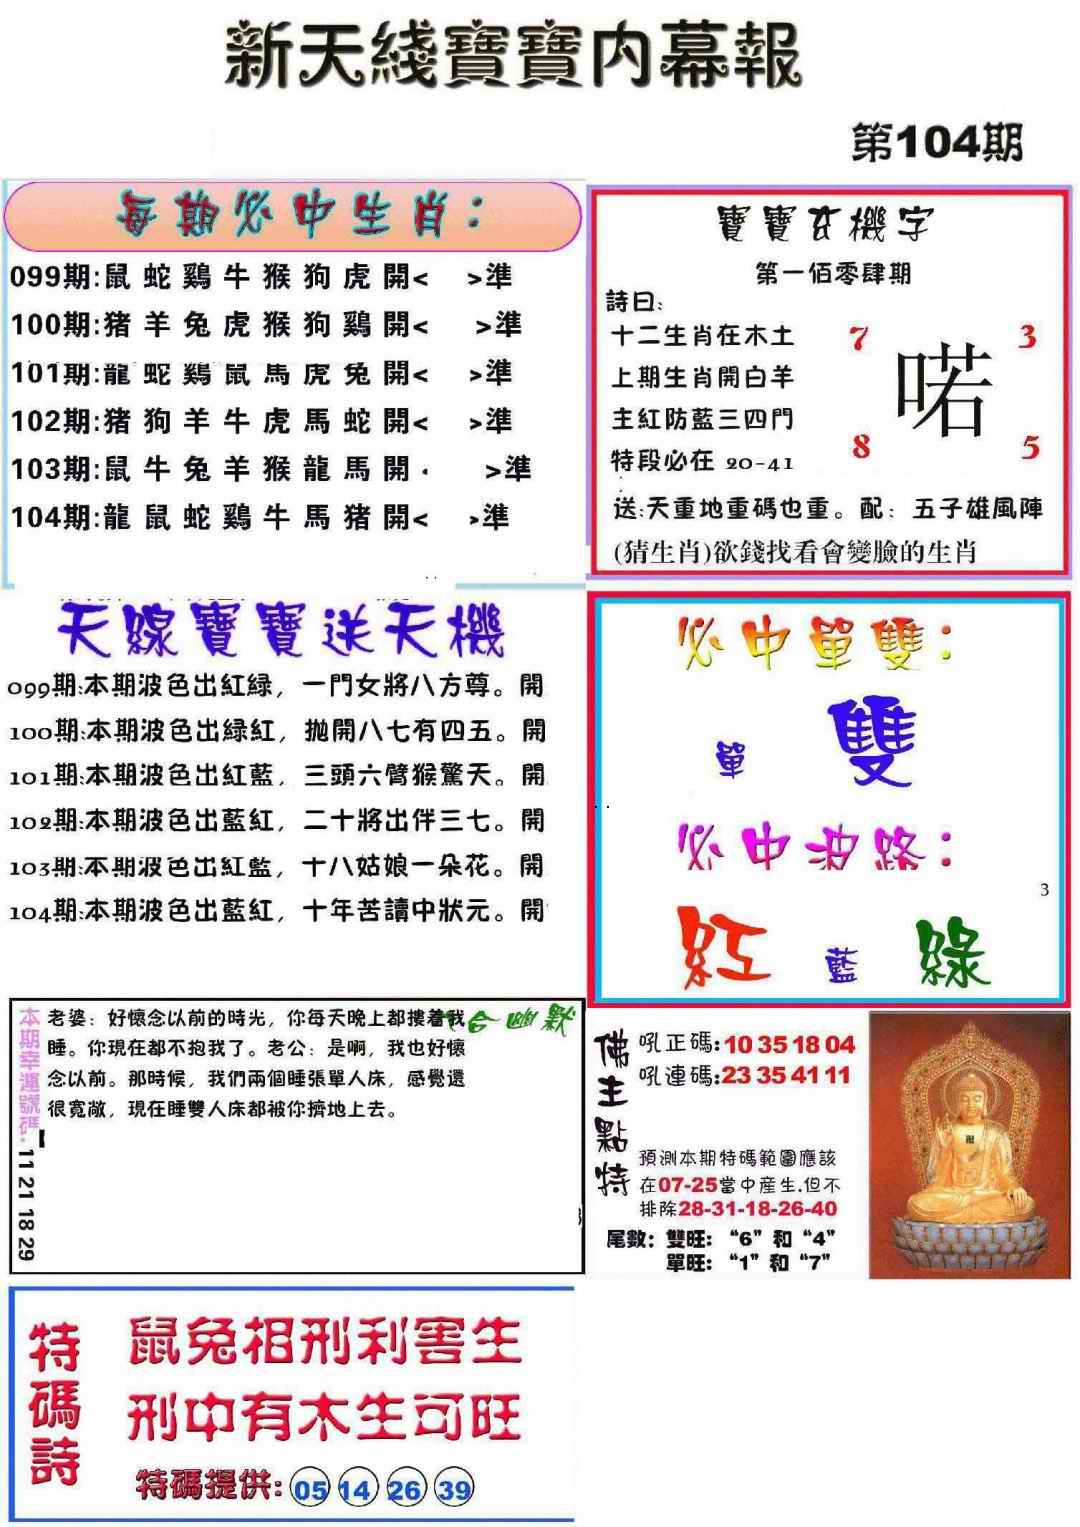 新天綫寶寶内幕報
第104期
每期必中生肖：
099期:鼠蛇鷄牛猴狗虎開< >準
100期:猪羊兔虎猴狗鷄開< >準
101期:龍蛇鷄鼠馬虎兔開< >準
102期:猪狗羊牛虎馬蛇開< >準
103期:鼠牛兔羊猴龍馬開 >準
104期:龍鼠蛇鷄牛馬猪開< >準
寶寶玄機字
第一佰零肆期
詩曰:
十二生肖在木土
上期生肖開白羊
主紅防藍三四門
特段必在 20-41
7 3
喏
8 5
送:天重地重碼也重。配：五子雄風陣
(猜生肖)欲錢找看會變臉的生肖
天線寶寶送天機
099期:本期波色出紅緑，一門女將八方尊。開
100期:本期波色出緑紅，抛開八七有四五。開
101期:本期波色出紅藍，三頭六臂猴驚天。開
102期:本期波色出藍紅，二十將出伴三七。開
103期:本期波色出紅藍，十八姑娘一朵花。開
104期:本期波色出藍紅，十年苦讀中狀元。開
必中單雙：
單 雙
必中波路：
3
紅 藍 綠
本期幸運號碼: 11 21 18 29
合幽默
老婆：好懷念以前的時光，你每天晚上都摟着我
睡。你現在都不抱我了。老公：是啊，我也好懷
念以前。那時候，我們兩個睡張單人床，感覺還
很寬敞，現在睡雙人床都被你擠地上去。
佛主點特
吼正碼:10 35 18 04
吼連碼:23 35 41 11
預測本期特碼範圍應該
在07-25當中産生.但不
排除28-31-18-26-40
尾數：雙旺：“6”和“4”
單旺：“1”和“7”
特碼詩
鼠兔相刑利害生
刑中有木生可旺
特碼提供: 05 14 26 39